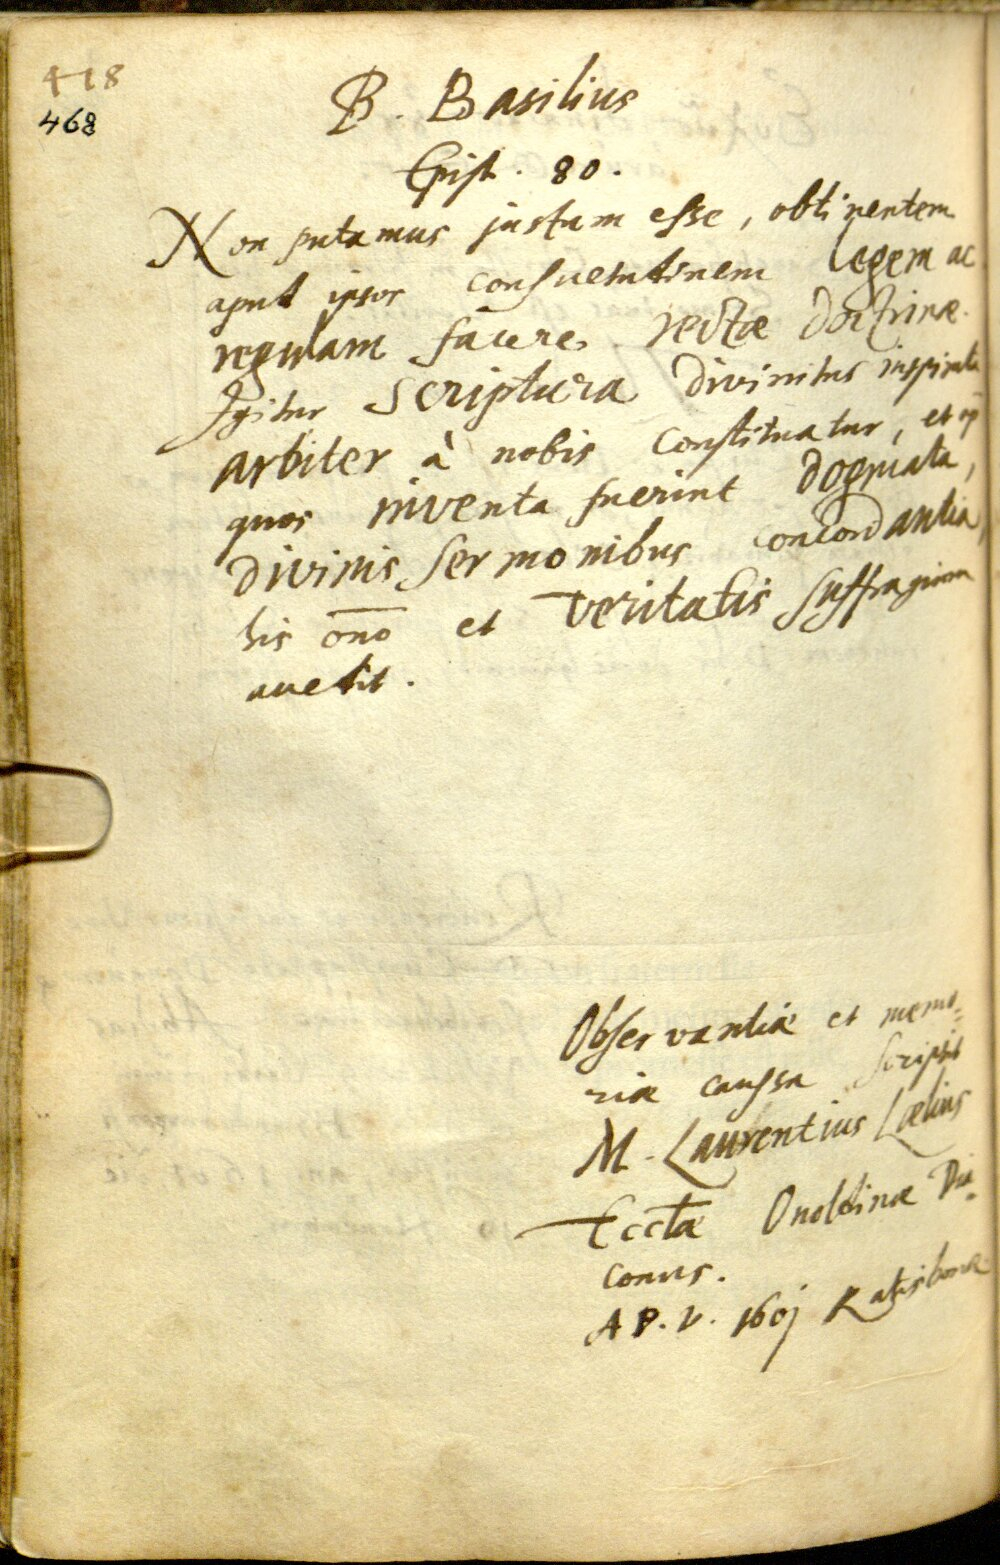 418
468
B. Basilius
Epist. 80.
Non putamus justam esse, obtinentem
aput ipsos consuetutinem legem ac
regulam facere rectæ doctrinæ.
Igitur Scriptura divinitus inspirata
arbiter à nobis constituatur, et ap
quos inventa fuerint dogmata,
divinis sermonibus concordantia,
his om̅o et Veritatis suffragium
accedit.
Observantiæ et memo=
riæ caussa scripsit
M. Laurentius Lælius
Eccłæ Onoldinæ Dia=
conus.
1601 Ratisbonæ